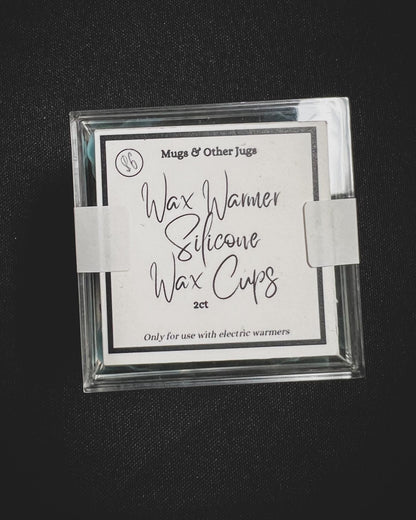 $6
Mugs & Other Jugs
Wax Warmer
Silicone
Wax Cups
2ct
Only for use with electric warmers